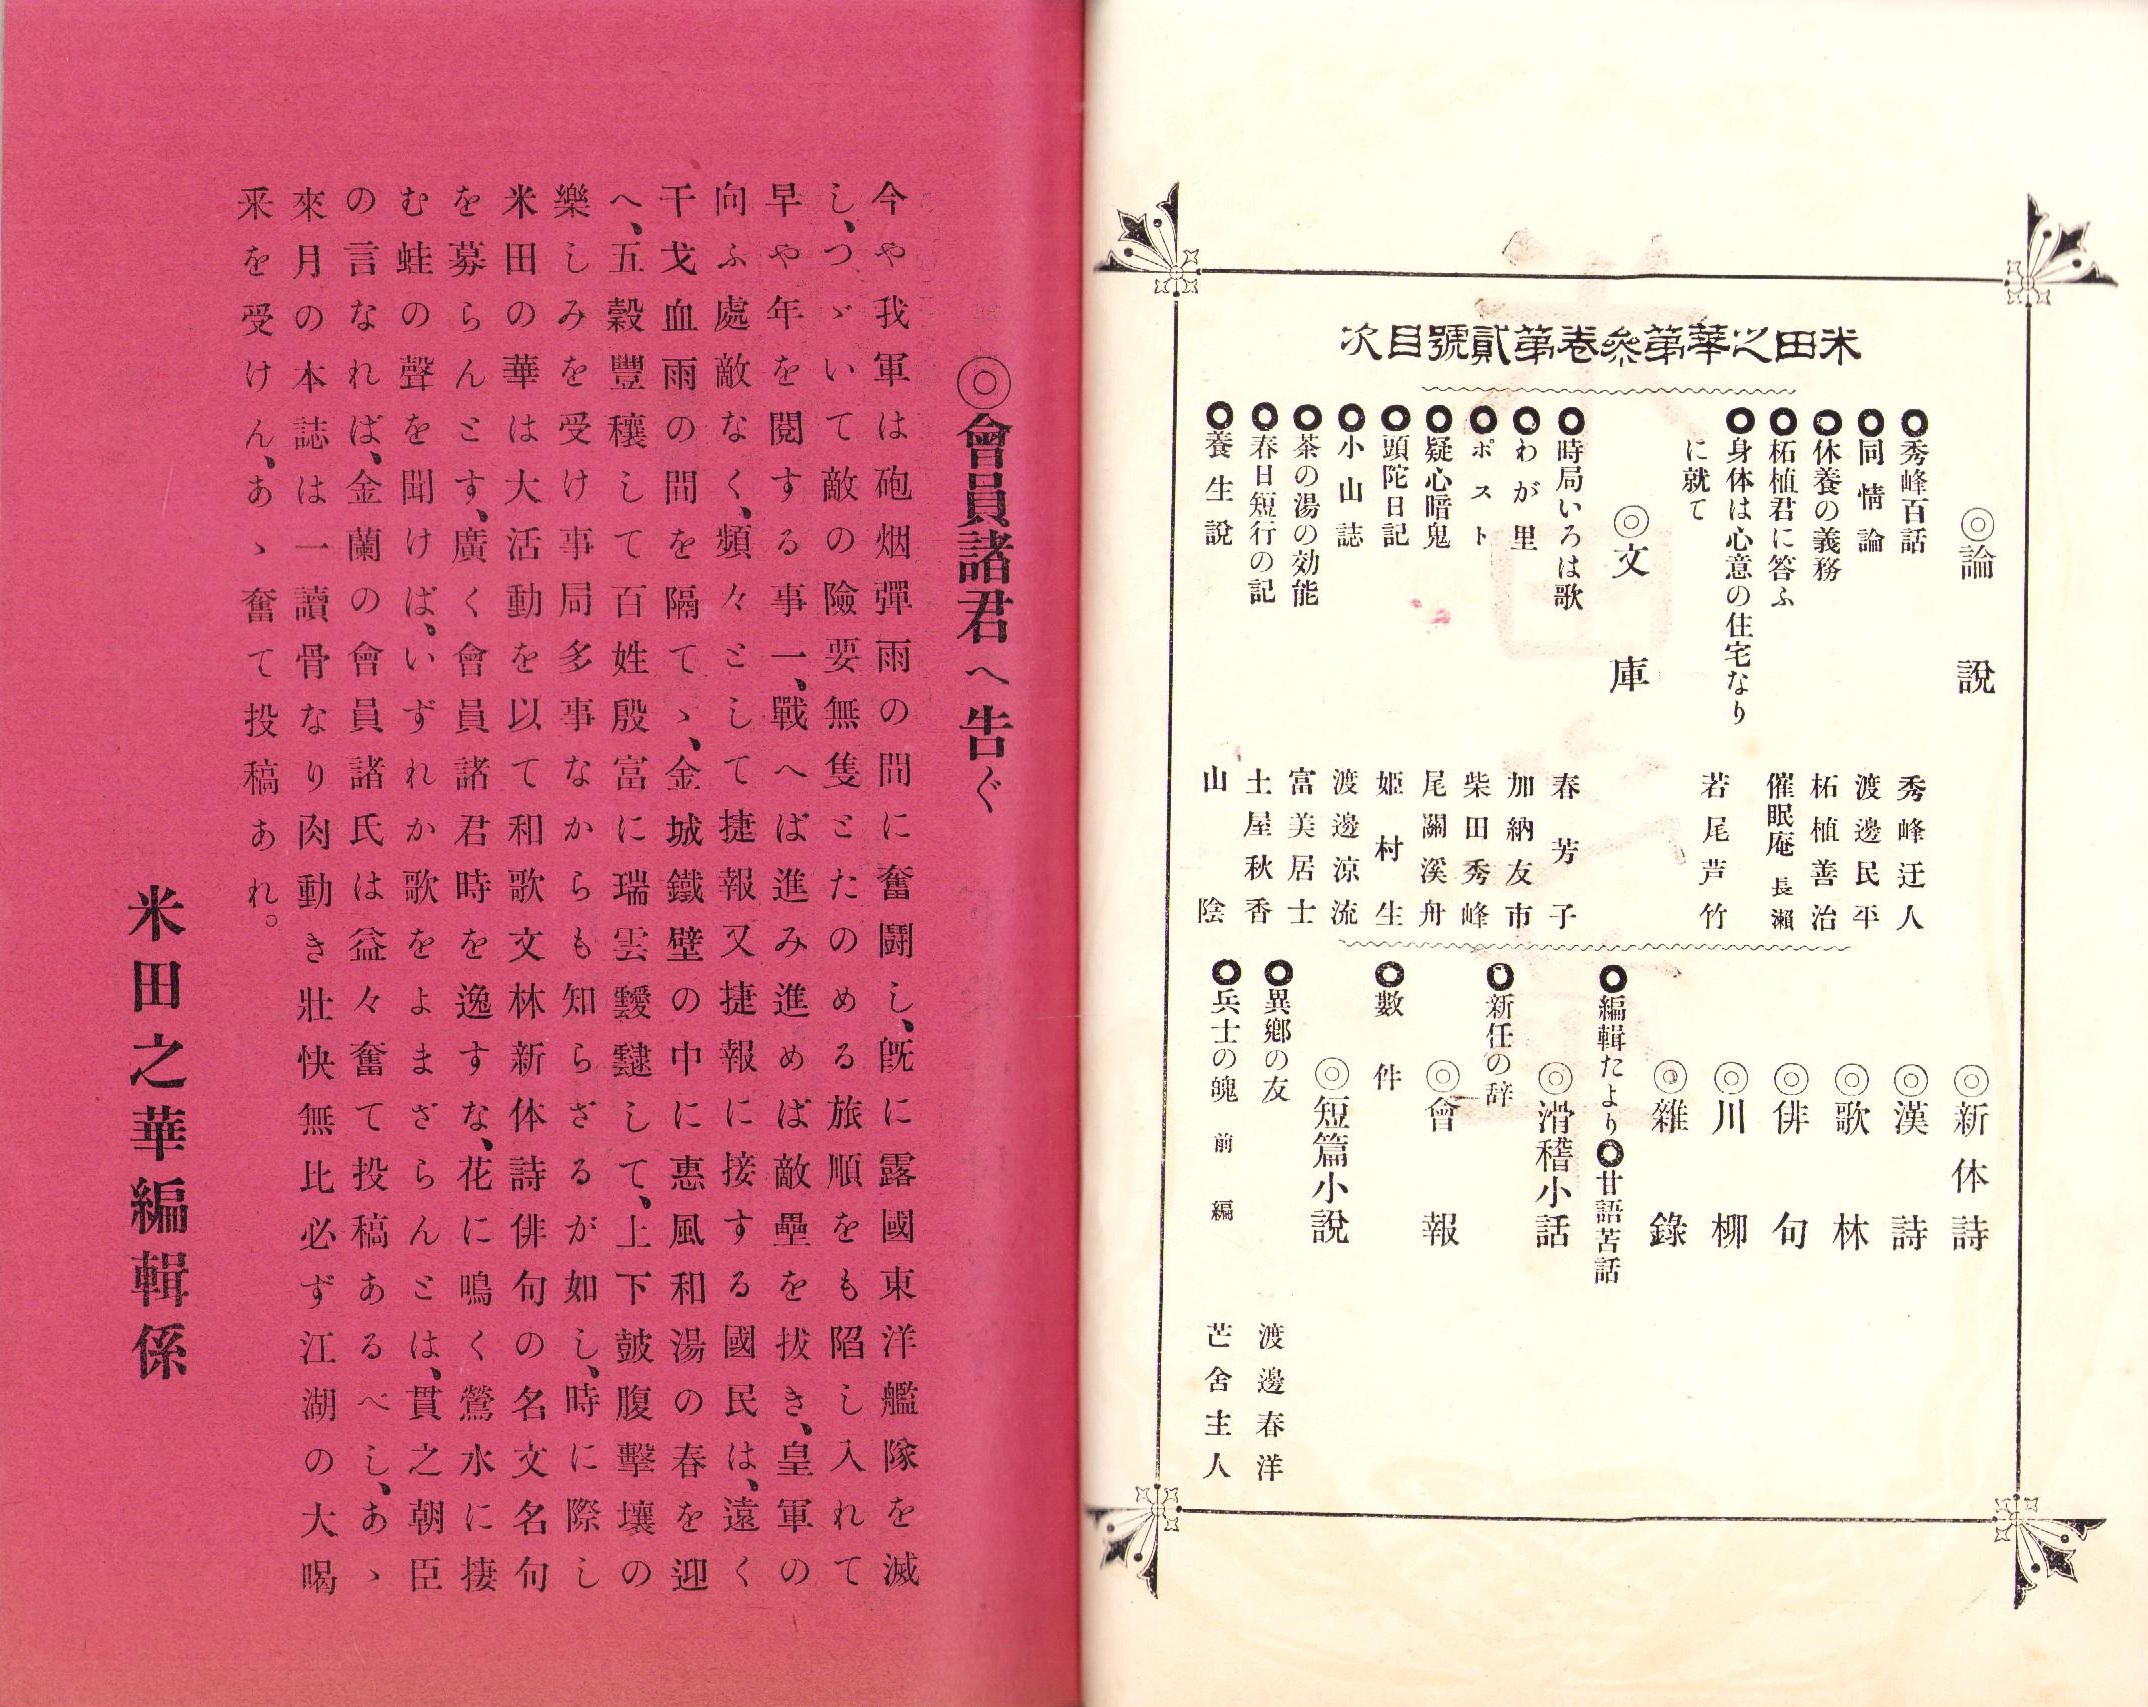 米田之華第參卷第貳號目次
◎論説
秀峰百話 秀峰迂人
同情論 渡邊民平
休養の義務 柘植善治
柘植君に答ふ 催眠庵 長瀬
身体は心意の住宅なり
に就て 若尾芦竹
◎文庫
時局いろは歌 春芳子
わが里 加納友市
ポスト 柴田秀峰
疑心暗鬼 尾關溪舟
頭陀日記 姫村生
小山誌 渡邊涼流
茶の湯の効能 富美居士
春日短行の記 土屋秋香
養生説 山陰
◎新体詩
◎漢詩
◎歌林
◎俳句
◎川柳
◎雜錄
編輯たより 甘語苦話
◎滑稽小話
新任の辞
◎會報
數件
◎短篇小説
異郷の友 渡邊春洋
兵士の魄 前編 芒舍主人
◎會員諸君へ告ぐ
今や我軍は砲烟彈雨の間に奮鬪し、既に露國東洋艦隊を滅
し、つゞいて敵の險要無隻とたのめる旅順をも陷し入れて
早や年を閲する事一、戰へば進み進めば敵壘を拔き、皇軍の
向ふ處敵なく、頻々として捷報又捷報に接する國民は、遠く
干戈血雨の間を隔てゝ、金城鐵壁の中に惠風和湯の春を迎
へ、五穀豐穰して百姓殷富に瑞雲靉靆して、上下皷腹擊壤の
樂しみを受け事局多事なからも知らざるが如し、時に際し
米田の華は大活動を以て和歌文林新体詩俳句の名文名句
を募らんとす、廣く會員諸君時を逸すな、花に鳴く鶯水に捿
む蛙の聲を聞けば、いずれか歌をよまざらんとは、貫之朝臣
の言なれば、金蘭の會員諸氏は益々奮て投稿あるべし、あゝ
來月の本誌は一讀骨なり肉動き壯快無比必ず江湖の大喝
采を受けん、あゝ奮て投稿あれ。
米田之華編輯係